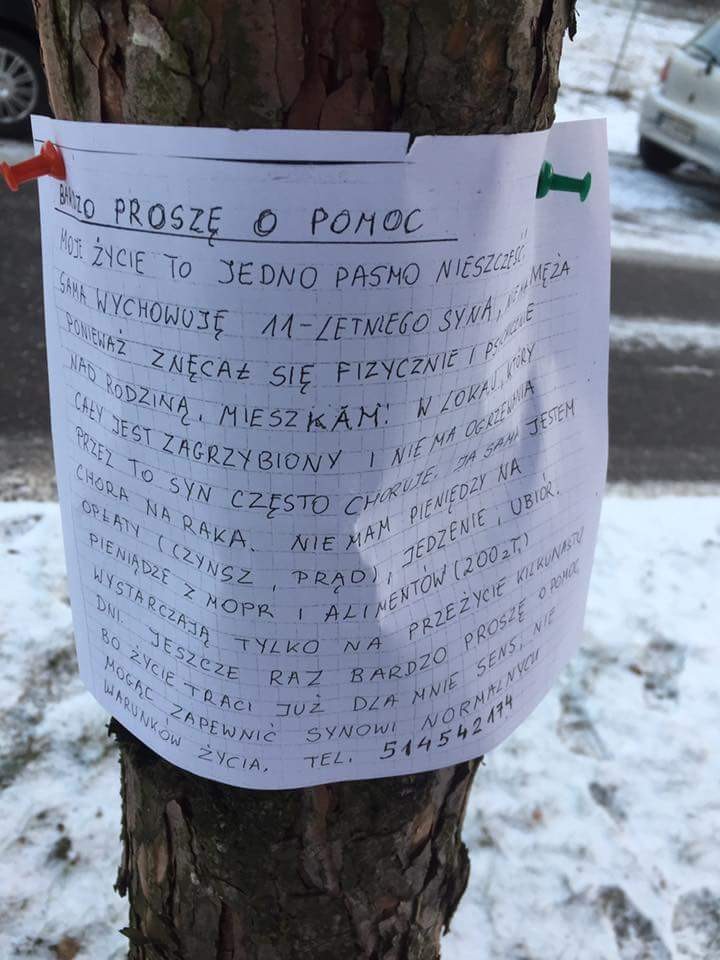 BARDZO PROSZĘ O POMOC
MOJE ŻYCIE TO JEDNO PASMO NIESZCZĘŚĆ.
SAMA WYCHOWUJĘ 11-LETNIEGO SYNA, NIE MA MĘŻA
PONIEWAŻ ZNĘCAŁ SIĘ FIZYCZNIE I PSYCHICZNIE
NAD RODZINĄ. MIESZKAM! W LOKALU, KTÓRY
CAŁY JEST ZAGRZYBIONY I NIE MA OGRZEWANIA
PRZEZ TO SYN CZĘSTO CHORUJE. JA SAMA JESTEM
CHORA NA RAKA. NIE MAM PIENIĘDZY NA
OPŁATY (CZYNSZ, PRĄD), JEDZENIE, UBIÓR.
PIENIĄDZE Z MOPR I ALIMENTÓW (200zł)
WYSTARCZAJĄ TYLKO NA PRZEŻYCIE KILKUNASTU
DNI. JESZCZE RAZ BARDZO PROSZĘ O POMOC,
BO ŻYCIE TRACI JUŻ DLA MNIE SENS, NIE
MOGĄC ZAPEWNIĆ SYNOWI NORMALNYCH
WARUNKÓW ŻYCIA. TEL. 514542174